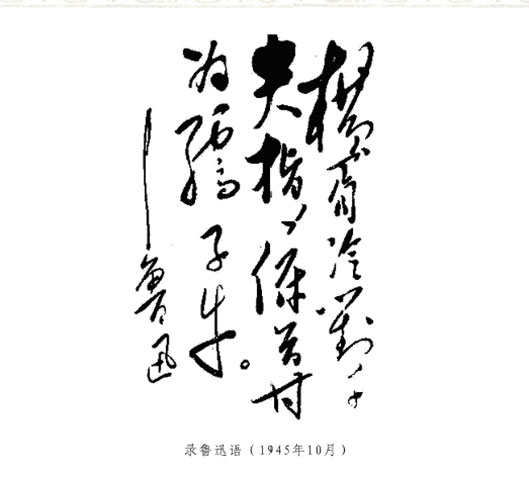 横眉冷對千
夫指，俯首甘
为孺子牛。
——魯迅
录鲁迅语（1945年10月）